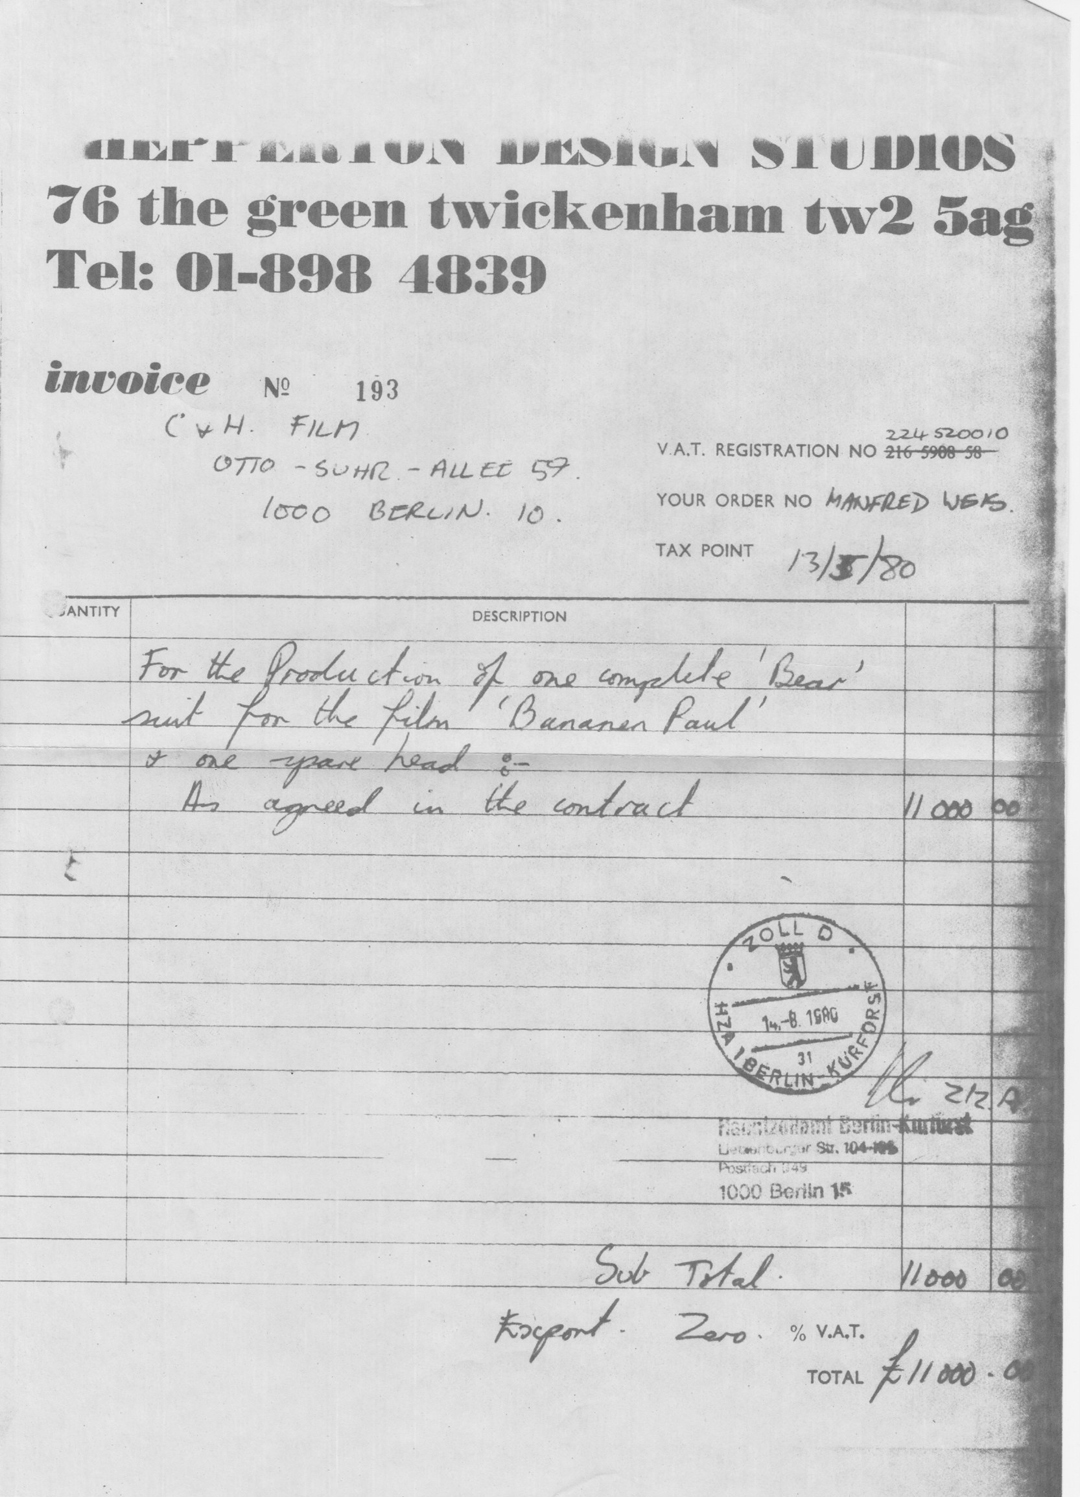 DESIGN STUDIOS
76 the green twickenham tw2 5ag
Tel: 01-898 4839
invoice Nº 193
C & H. FILM
OTTO - SUHR - ALLEE 59.
1000 BERLIN. 10.
224520010
V.A.T. REGISTRATION NO 216 5908 58
YOUR ORDER NO MANFRED WEIS.
TAX POINT 13/5/80
ANTITY DESCRIPTION
For the Production of one complete 'Bear'
suit for the film 'Bananen Paul'
& one spare head :-
As agreed in the contract 11 000 00
ZOLL D
14.-8. 1980
31
HZA BERLIN-KURFÜRST
Z.I.Z. A.
Hauptzollamt Berlin-Kurfürst
Str. 104-106
Postfach
1000 Berlin 15
Sub Total. 11000 00
Export. Zero. % V.A.T.
TOTAL £11000.00